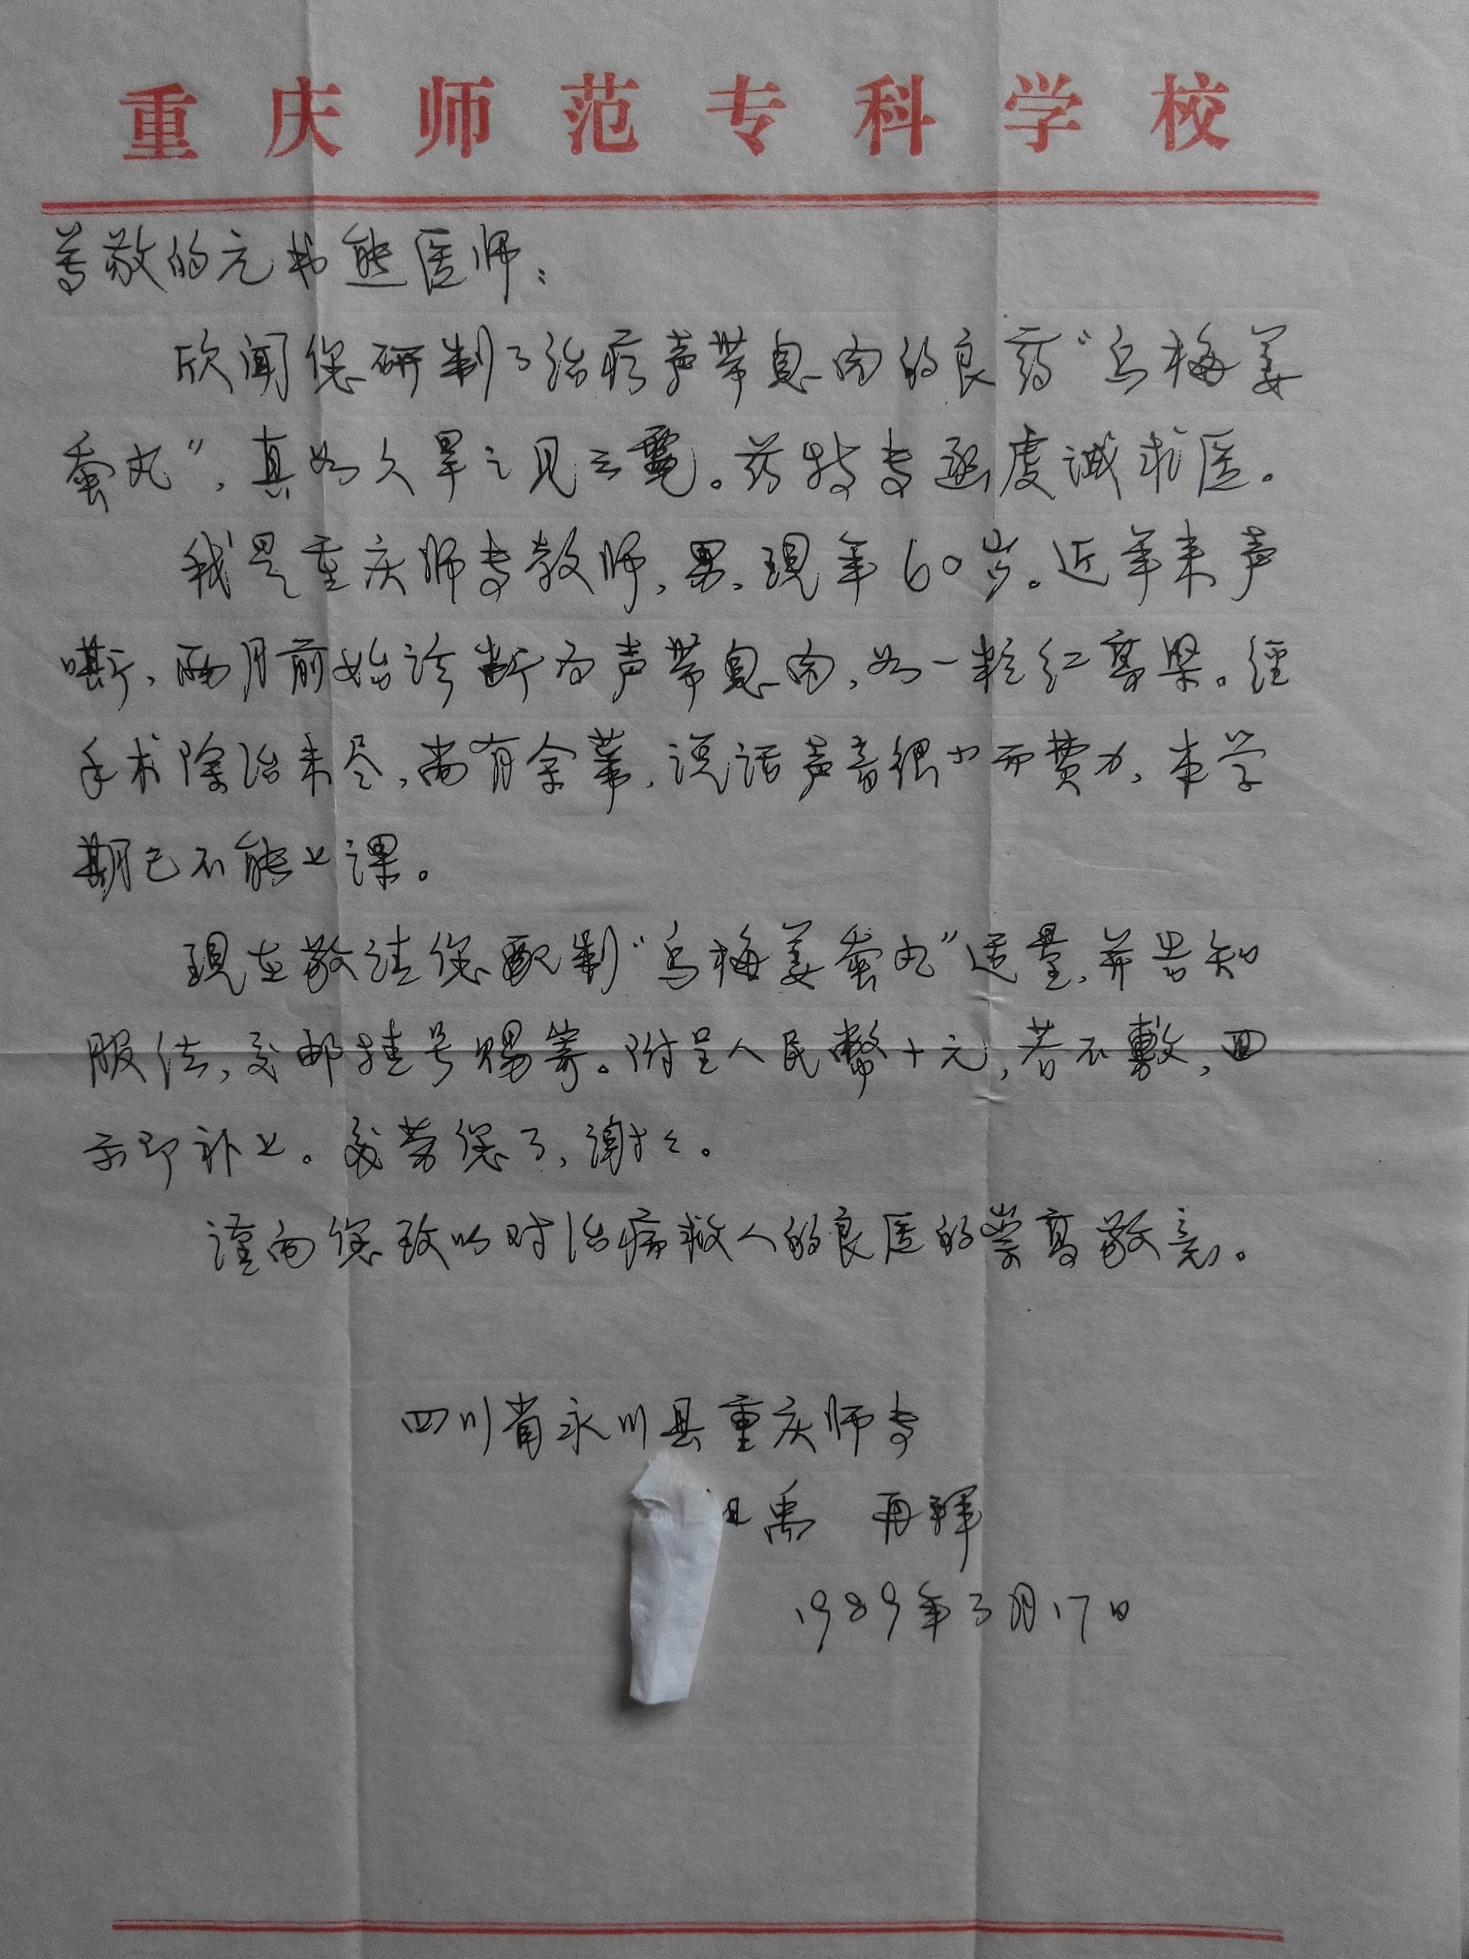 重庆师范专科学校
尊敬的元书熊医师：
欣闻您研制了治疗声带息肉的良药“乌梅姜
蚕丸”，真如久旱之见云霓。兹特专函虔诚求医。
我是重庆师专教师，男，现年60岁。近年来声
嘶，两月前始诊断为声带息肉，如一粒红高粱。经
手术除治未尽，尚有余蒂，说话声音很小而费力，本学
期已不能上课。
現在敬请您配制“乌梅姜蚕丸”适量，并告知
服法，交邮挂号赐寄。附呈人民幣十元，若不敷，回
示即补上。多劳您了，谢々。
谨向您致以对治病救人的良医的崇高敬意。
四川省永川县重庆师专
禹 再拜
1989年3月17日